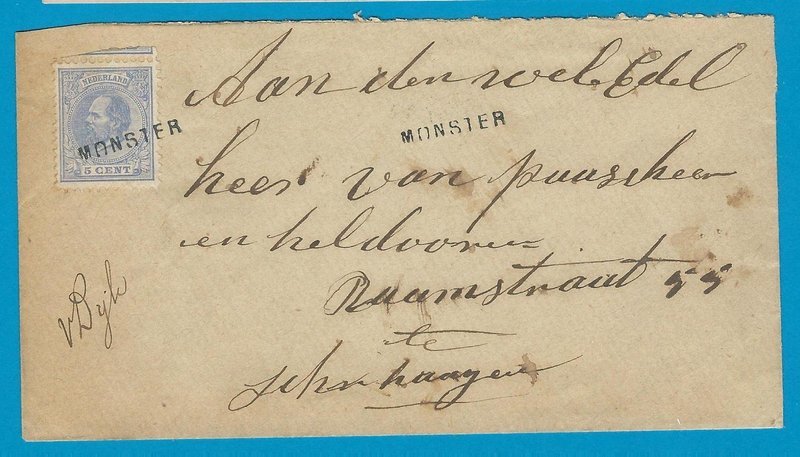 NEDERLAND
5 CENT
MONSTER
MONSTER
Aan den wel Edel
heer van puuscheen
en heldooren
Raamstraat 55
te
schn haagen
v Dijk